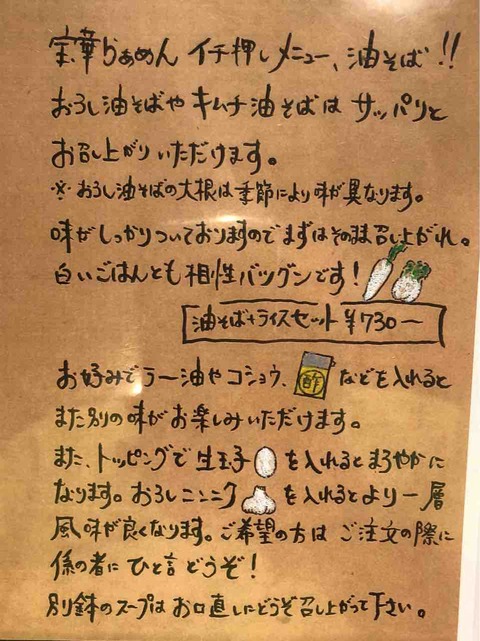 宗華らぁめん イチ押しメニュー、油そば!!
おろし油そばや キムチ油そばは サッパリと
お召し上がりいただけます。
※おろし油そばの大根は季節により味が異なります。
味がしっかりついておりますのでまずはそのまま召し上がれ。
白いごはんとも相性バツグンです!
油そば+ライスセット ¥730ー
お好みでラー油やコショウ、酢などを入れると
また別の味がお楽しみいただけます。
また、トッピングで生玉子を入れるとまろやかに
なります。おろしニンニクを入れるとより一層
風味が良くなります。ご希望の方はご注文の際に
係の者にひと言どうぞ!
別鉢のスープはお口直しにどうぞ召し上がって下さい。